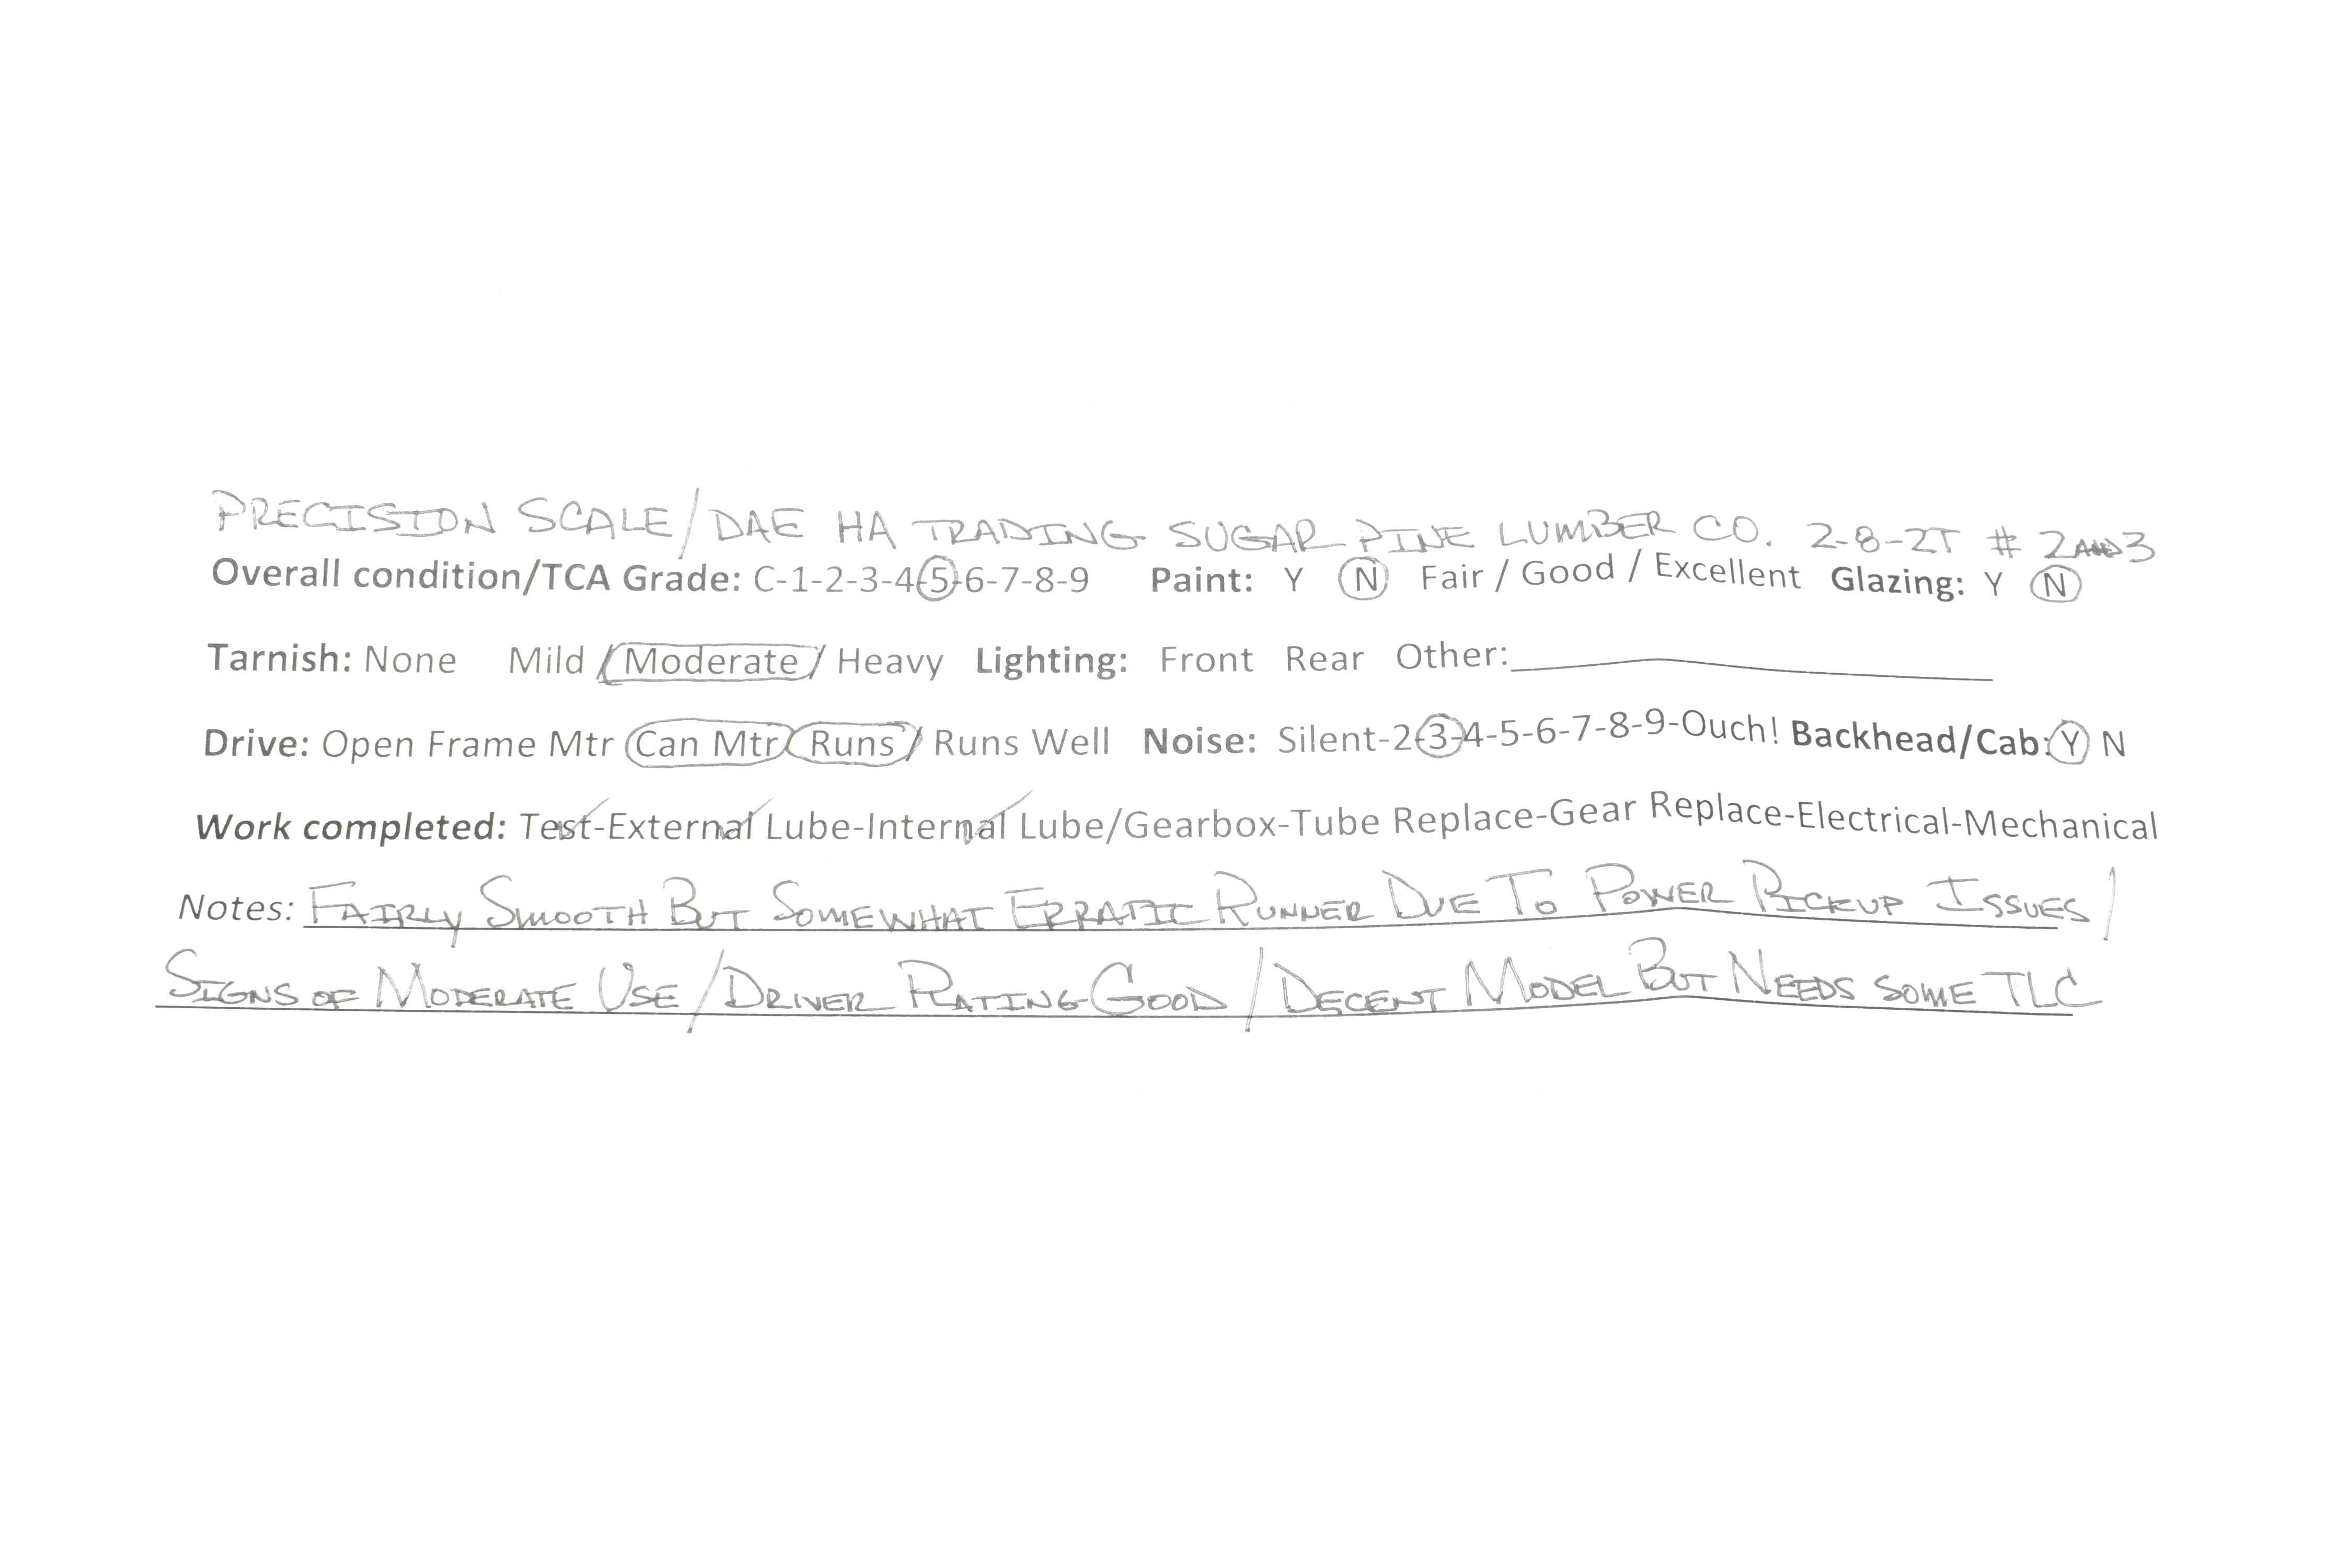 PRECISION SCALE/DAE HA TRADING SUGAR PINE LUMBER CO. 2-8-2T # 2 AND 3
Overall condition/TCA Grade: C-1-2-3-4-5-6-7-8-9 Paint: Y N Fair / Good / Excellent Glazing: Y N
Tarnish: None Mild / Moderate / Heavy Lighting: Front Rear Other:
Drive: Open Frame Mtr Can Mtr / Runs / Runs Well Noise: Silent-2-3-4-5-6-7-8-9-Ouch! Backhead/Cab: Y N
Work completed: Test-External Lube-Internal Lube/Gearbox-Tube Replace-Gear Replace-Electrical-Mechanical
Notes: FAIRLY SMOOTH BUT SOMEWHAT ERRATIC RUNNER DUE TO POWER PICKUP ISSUES /
SIGNS OF MODERATE USE / DRIVER RATING-GOOD / DECENT MODEL BUT NEEDS SOME TLC